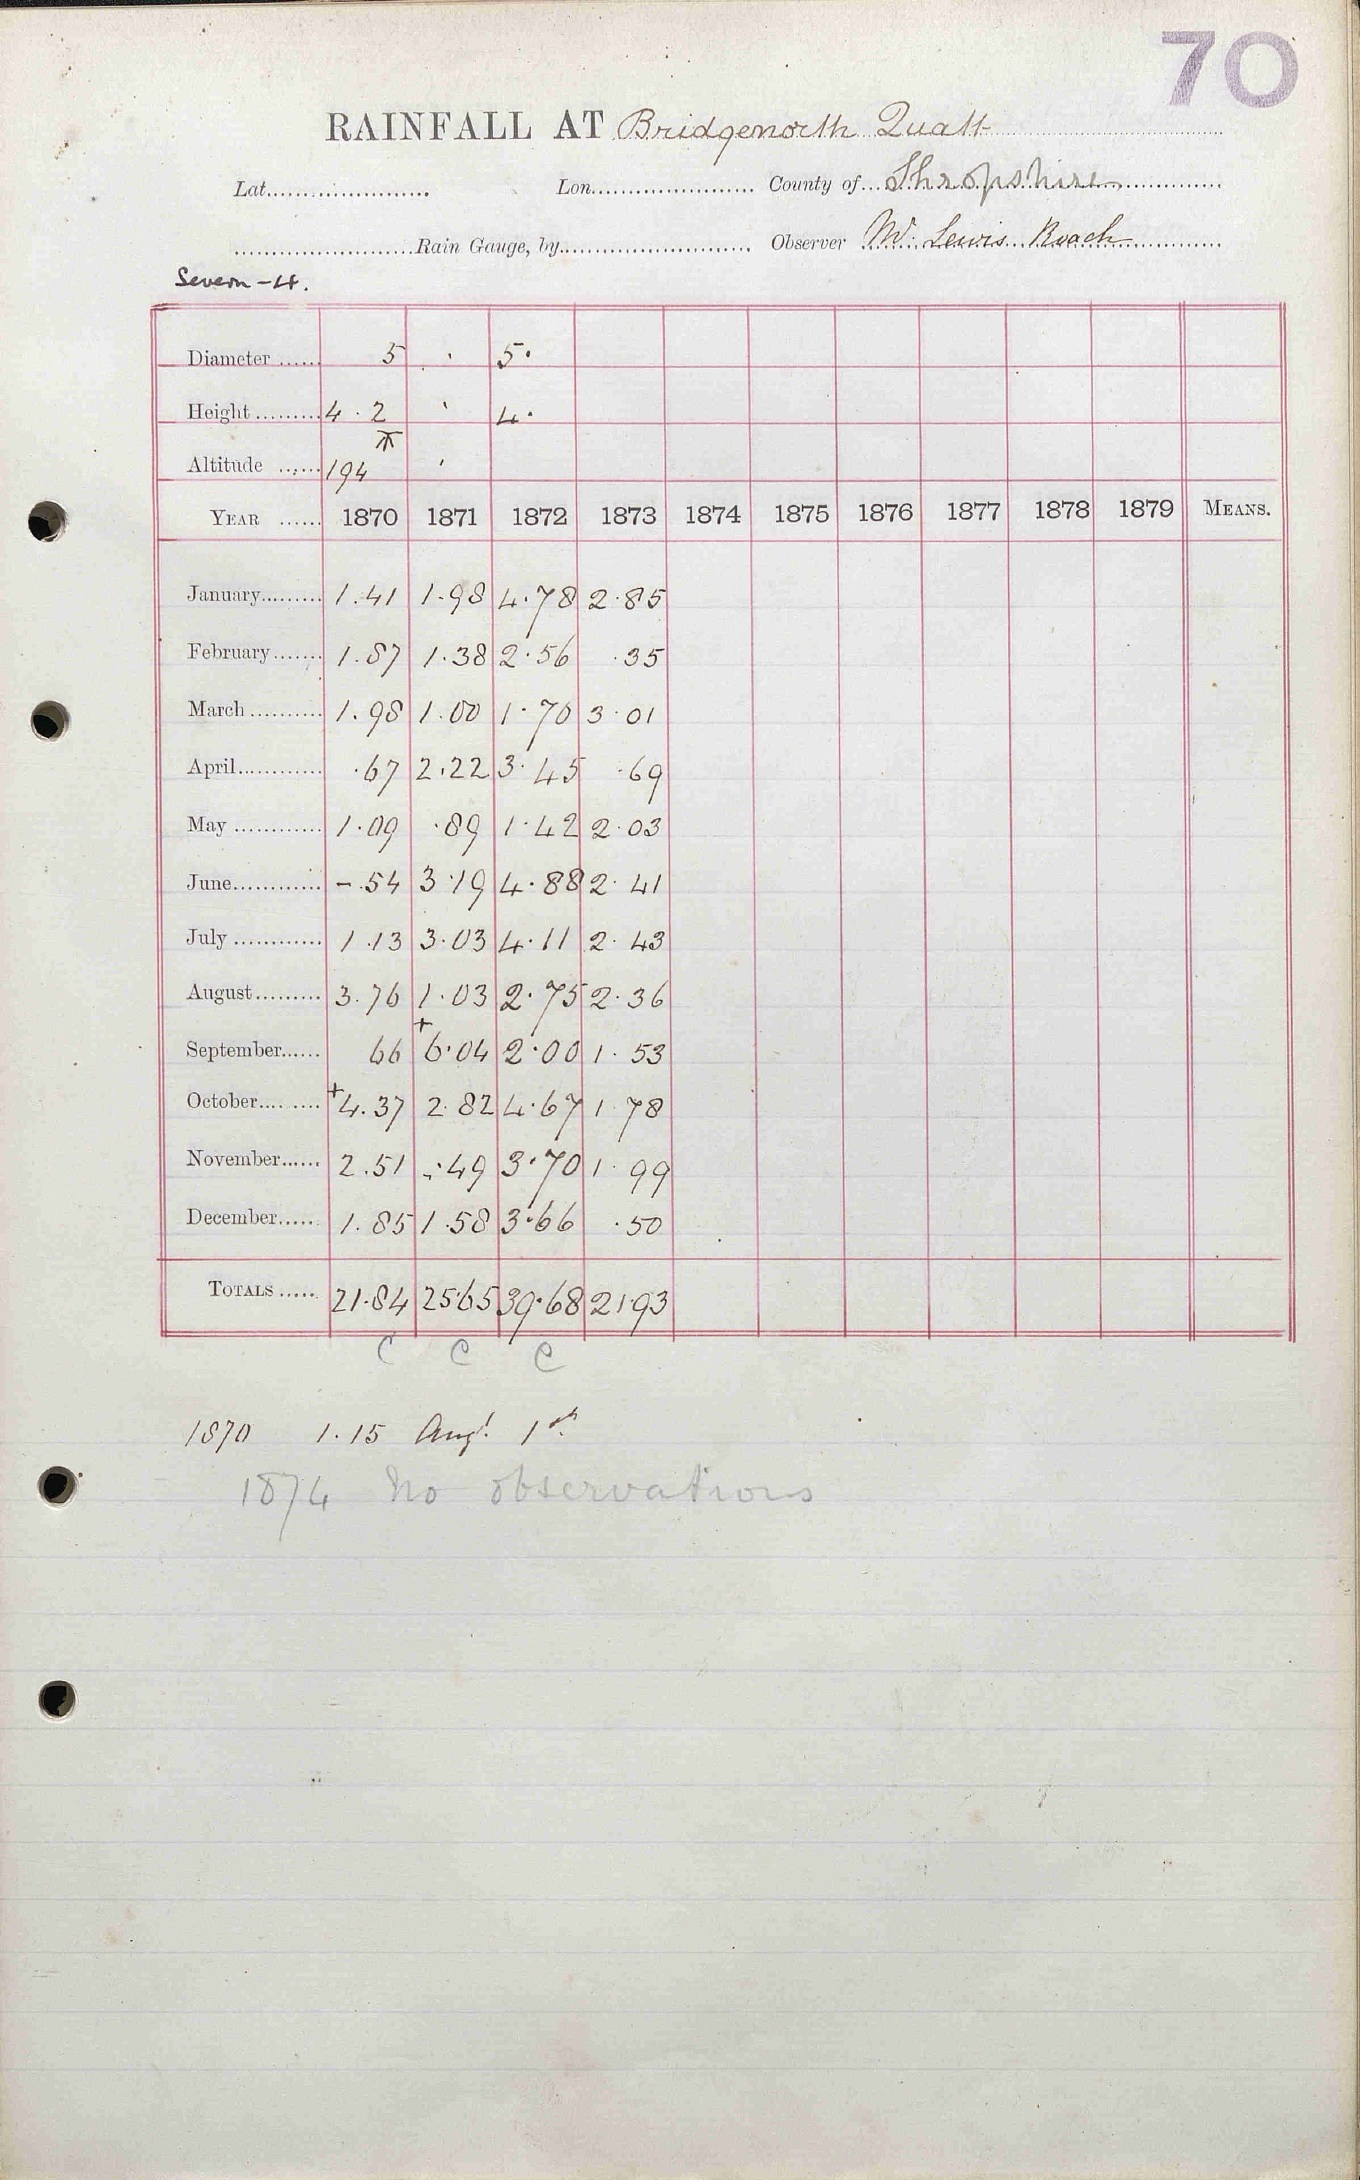 70
RAINFALL AT Bridgenorth Quatt
Lat. Lon. County of Shropshire
Rain Gauge, by Observer Mr. Lewis Roach
Severn - 4.
Diameter 5 · 5·
Height 4 . 2 ' 4·
Altitude 194 '
YEAR 1870 1871 1872 1873 1874 1875 1876 1877 1878 1879 MEANS.
January 1.41 1.98 4.78 2.85
February 1.87 1.38 2.56 .35
March 1.98 1.00 1.70 3.01
April .67 2.22 3.45 .69
May 1.09 .89 1.42 2.03
June -.54 3.19 4.88 2.41
July 1.13 3.03 4.11 2.43
August 3.76 1.03 2.75 2.36
September 66 +6.04 2.00 1.53
October +4.37 2.82 4.67 1.78
November 2.51 -.49 3.70 1.99
December 1.85 1.58 3.66 .50
TOTALS 21.84 25.65 39.68 21.93
C C C
1870 1.15 Augt 1st
1874 No observations